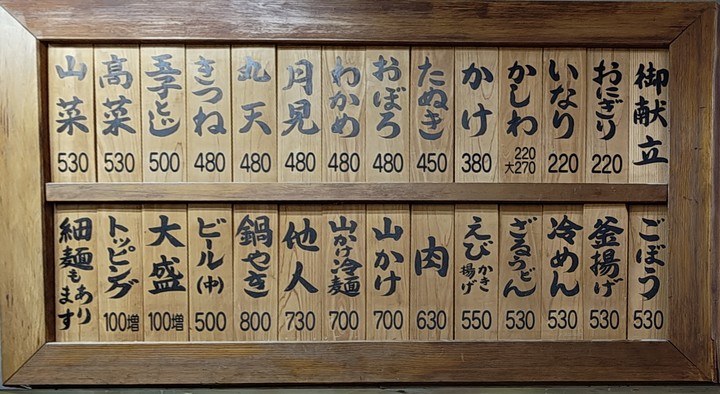 御献立
おにぎり 220
いなり 220
かしわ 220 大270
かけ 380
たぬき 450
おぼろ 480
わかめ 480
月見 480
丸天 480
きつね 480
玉子とじ 500
高菜 530
山菜 530
ごぼう 530
釜揚げ 530
冷めん 530
ざるうどん 530
えび かき揚げ 550
肉 630
山かけ 700
山かけ冷麺 700
他人 730
鍋やき 800
ビール(中) 500
大盛 100増
トッピング 100増
細麺もあります